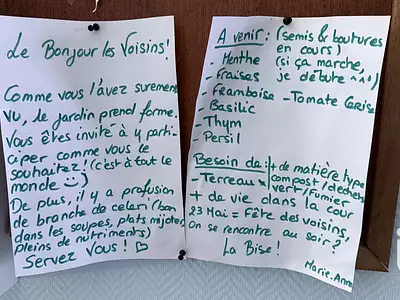 Le Bonjour les Voisins!
Comme vous l'avez surement
vu, le jardin prend forme.
Vous êtes invité à y parti-
ciper comme vous le
souhaitez! (c'est à tout le
monde ☺)
De plus, il y a profusion
de branche de celeri (bon
dans les soupes, plats mijotés
Pleins de nutriments)
Servez Vous! ♡
A venir: (semis & boutures
en cours)
- Menthe (si ça marche,
- Fraises je débute ^^!)
- Framboise - Tomate Cerise
- Basilic
- Thym
- Persil
Besoin de: + de matière type
- Terreau compost/déchets
vert/Fumier
+ de vie dans la cour
23 Mai = Fête des voisins,
on se rencontre au soir?
La Bise!
Marie-Anne